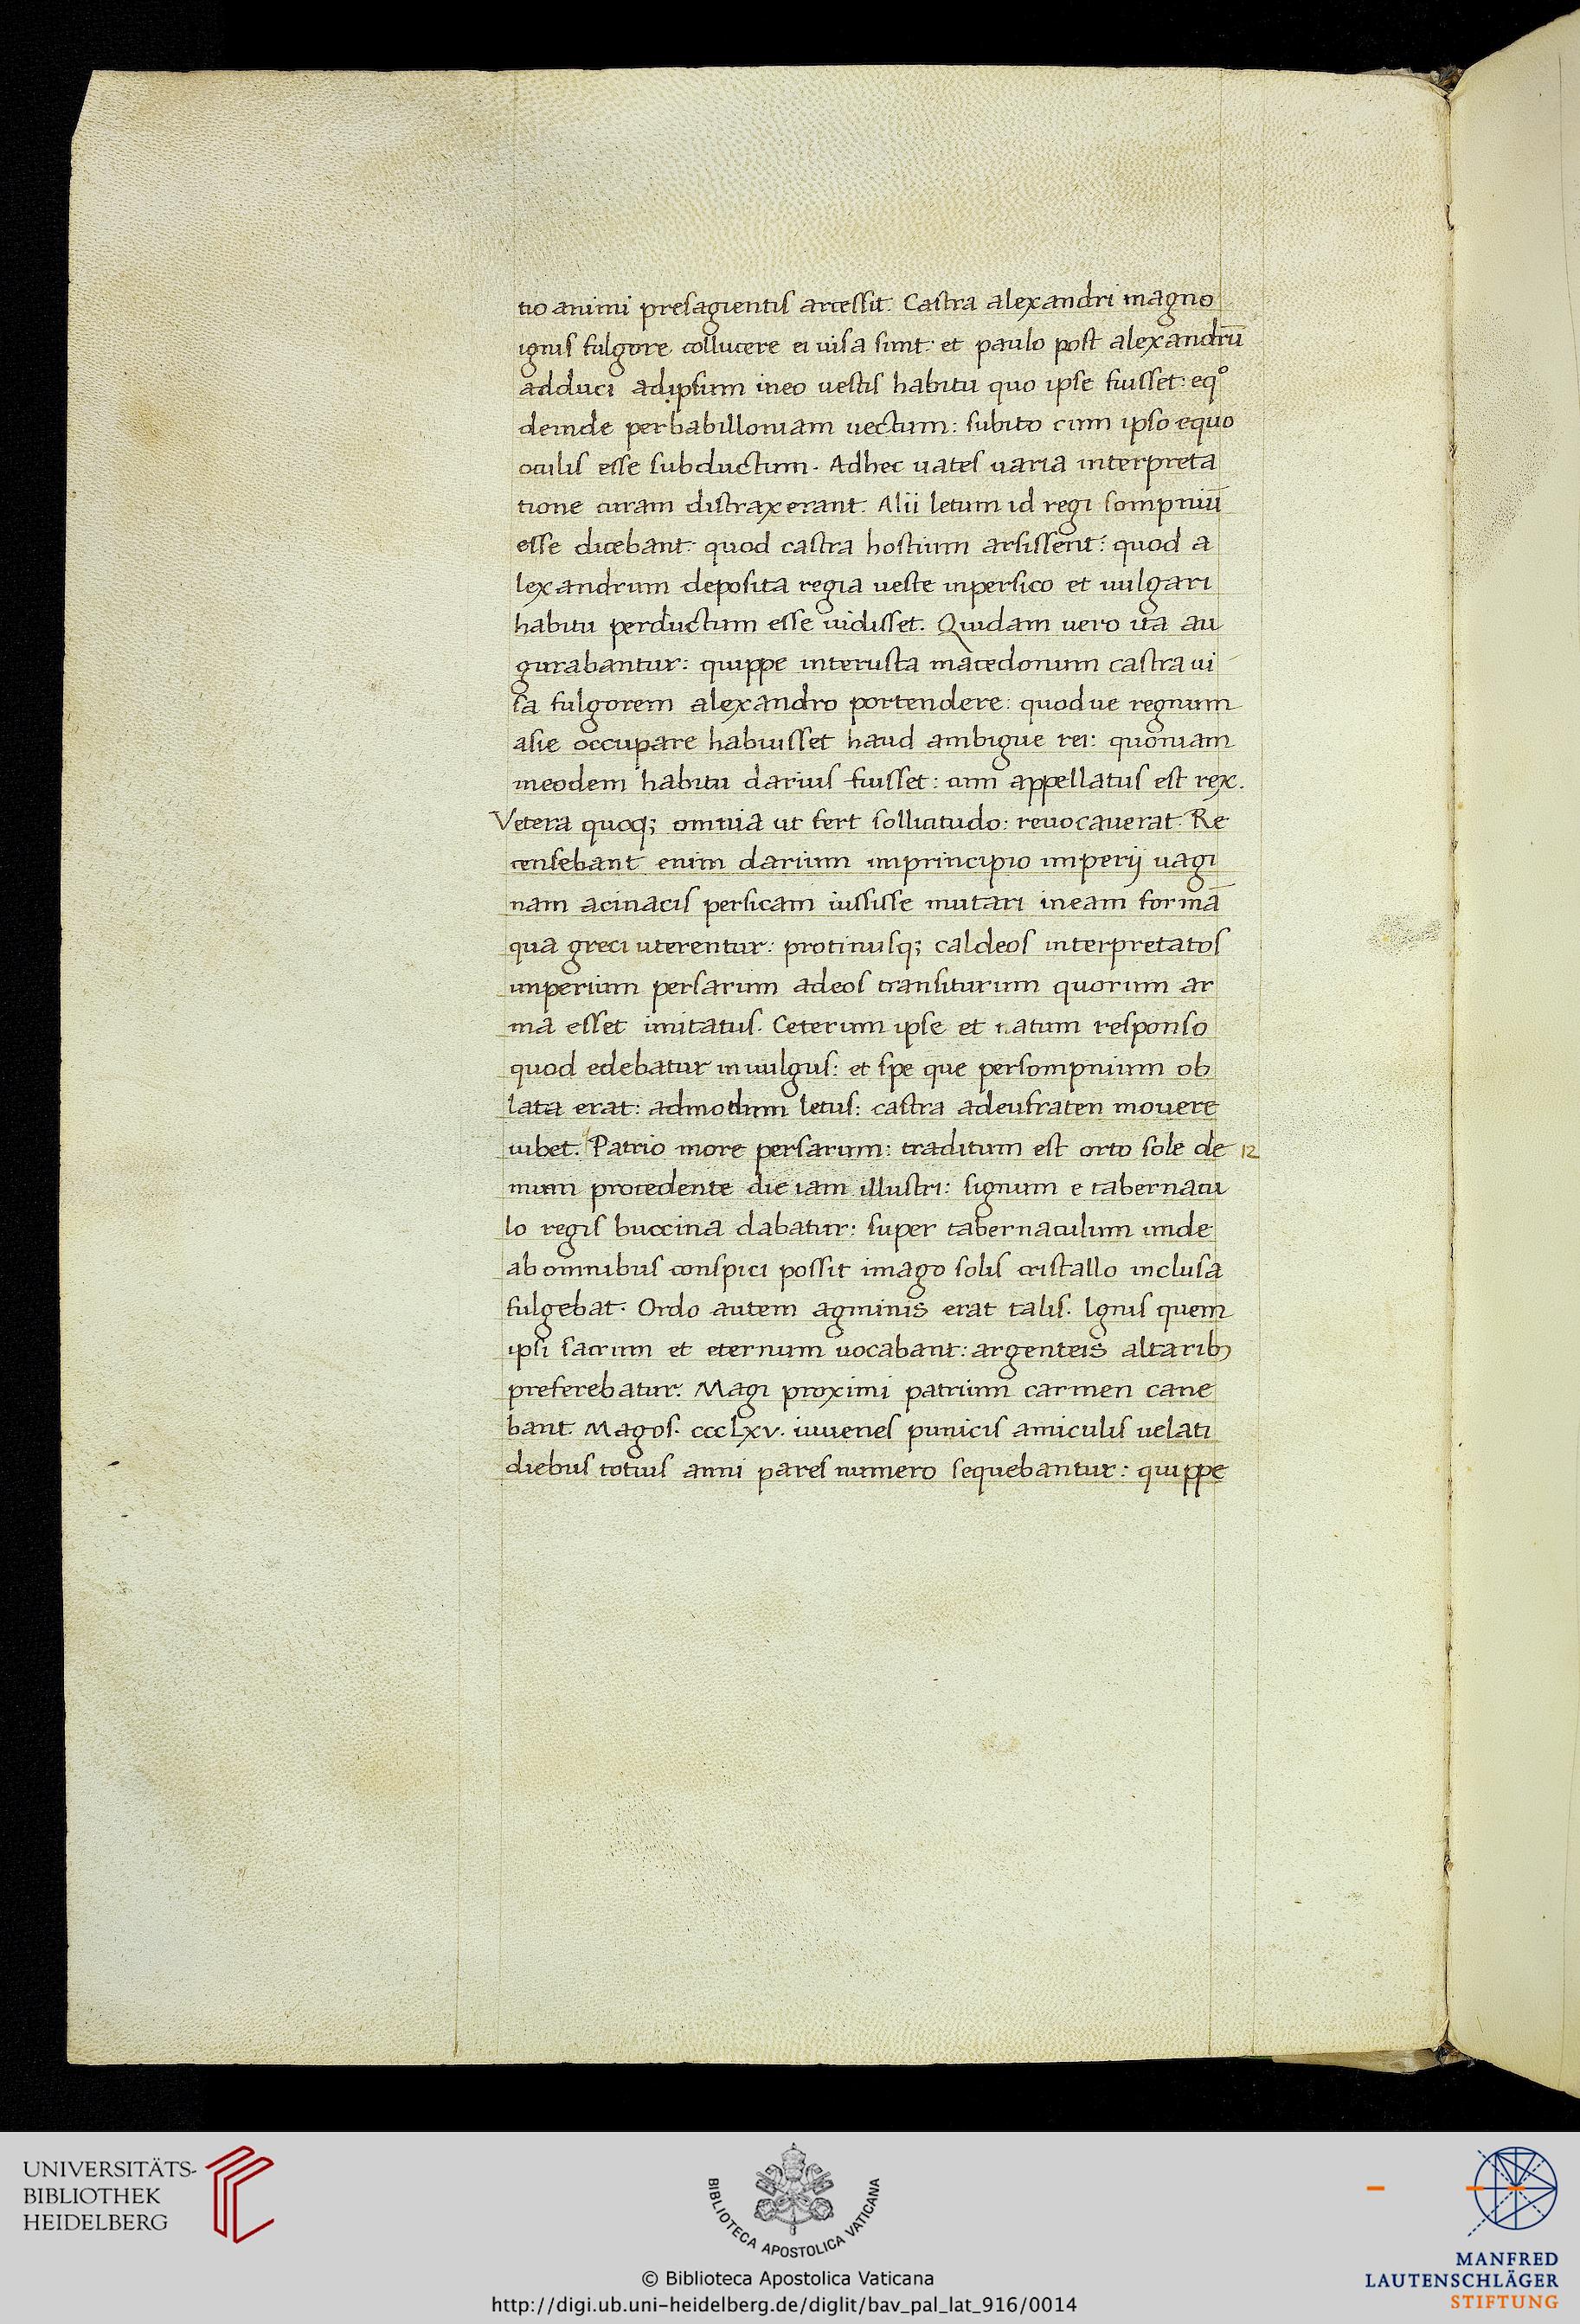 tio animi presagientis arcessit. Castra alexandri magno
ignis fulgore collucere ei uisa sunt: et paulo post alexandrū
adduci adipsum ineo uestis habitu quo ipse fuisset: eqº
deinde perbabilloniam uectum: subito cum ipso equo
oculis esse subductum. Adhec uates uaria interpreta
tione curam distraxerant. Alii letum id regi sompniū
esse dicebant: quod castra hostium arsissent: quod a
lexandrum deposita regia ueste inpersico et uulgari
habitu perductum esse uidisset. Quidam uero ita au
gurabantur: quippe interusta macedonum castra ui
sa fulgorem alexandro portendere: quodue regnum
asie occupare habuisset haud ambigue rei: quoniam
ineodem habitu darius fuisset: cum appellatus est rex.
Vetera quoq; omnia ut fert sollicitudo: reuocauerat. Re
censebant enim darium inprincipio imperij uagi
nam acinacis persicam iussisse mutari ineam formā
qua greci uterentur: protinusq; caldeos interpretatos
imperium persarum adeos transiturum quorum ar
ma esset imitatus. Ceterum ipse et uatum responso
quod edebatur inuulgus: et spe que persompnium ob
lata erat: admodum letus: castra adeufraten mouere
iubet. Patrio more persarum: traditum est orto sole de 12
mum procedente die iam illustri: signum e tabernacu
lo regis buccina dabatur: super tabernaculum unde
ab omnibus conspici possit imago solis cristallo inclusa
fulgebat. Ordo autem agminis erat talis. Ignis quem
ipsi sacrum et eternum uocabant: argenteis altarib;
preferebatur. Magi proximi patrium carmen cane
bant. Magos. ccclxv. iuuenes punicis amiculis uelati
diebus totius anni pares numero sequebantur: quippe
UNIVERSITÄTS-
BIBLIOTHEK
HEIDELBERG
BIBLIOTECA APOSTOLICA VATICANA
© Biblioteca Apostolica Vaticana
http://digi.ub.uni-heidelberg.de/diglit/bav_pal_lat_916/0014
MANFRED
LAUTENSCHLÄGER
STIFTUNG